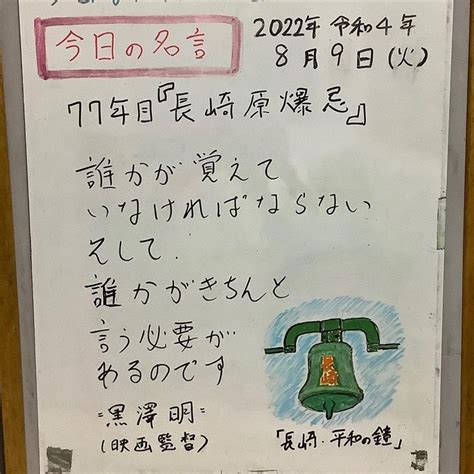 今日の名言
2022年 令和4年
8月9日(火)
77年目『長崎原爆忌』
誰かが覚えて
いなければならない
そして
誰かがきちんと
言う必要が
あるのです
=黒澤明=
(映画監督)
長崎
「長崎・平和の鐘」